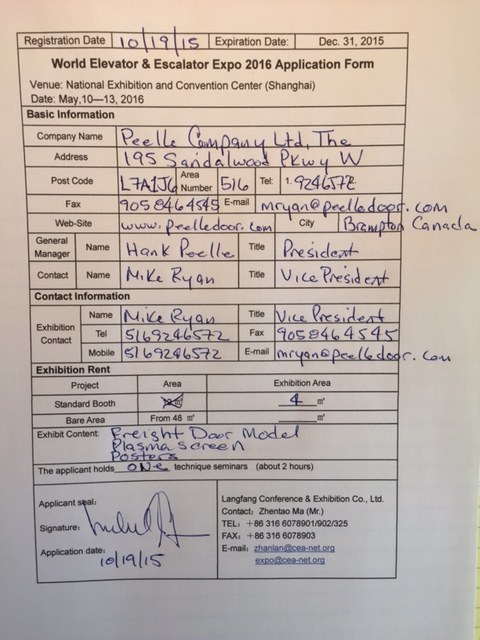 Registration Date 10/19/15 Expiration Date: Dec. 31, 2015
World Elevator & Escalator Expo 2016 Application Form
Venue: National Exhibition and Convention Center (Shanghai)
Date: May,10—13, 2016
Basic Information
Company Name Peelle Company Ltd, The
Address 195 Sandalwood Pkwy W
Post Code L7A1J6 Area Number 516 Tel: 1. 9246572
Fax 9058464545 E-mail mryan@peelledoor.com
Web-Site www.peelledoor.com City Brampton Canada
General Manager Name Hank Peelle Title President
Contact Name Mike Ryan Title Vice President
Contact Information
Exhibition Contact Name Mike Ryan Title Vice President
Tel 5169246572 Fax 9058464545
Mobile 5169246572 E-mail mryan@peelledoor.com
Exhibition Rent
Project Area Exhibition Area
Standard Booth 4 ㎡
Bare Area From 48 ㎡ ㎡
Exhibit Content: Freight Door Model
Plasma Screen
Posters
The applicant holds one technique seminars (about 2 hours)
Applicant seal:
Signature:
Application date:
10/19/15
Langfang Conference & Exhibition Co., Ltd.
Contact: Zhentao Ma (Mr.)
TEL: +86 316 6078901/902/325
FAX: +86 316 6078903
E-mail: zhanlan@cea-net.org
expo@cea-net.org